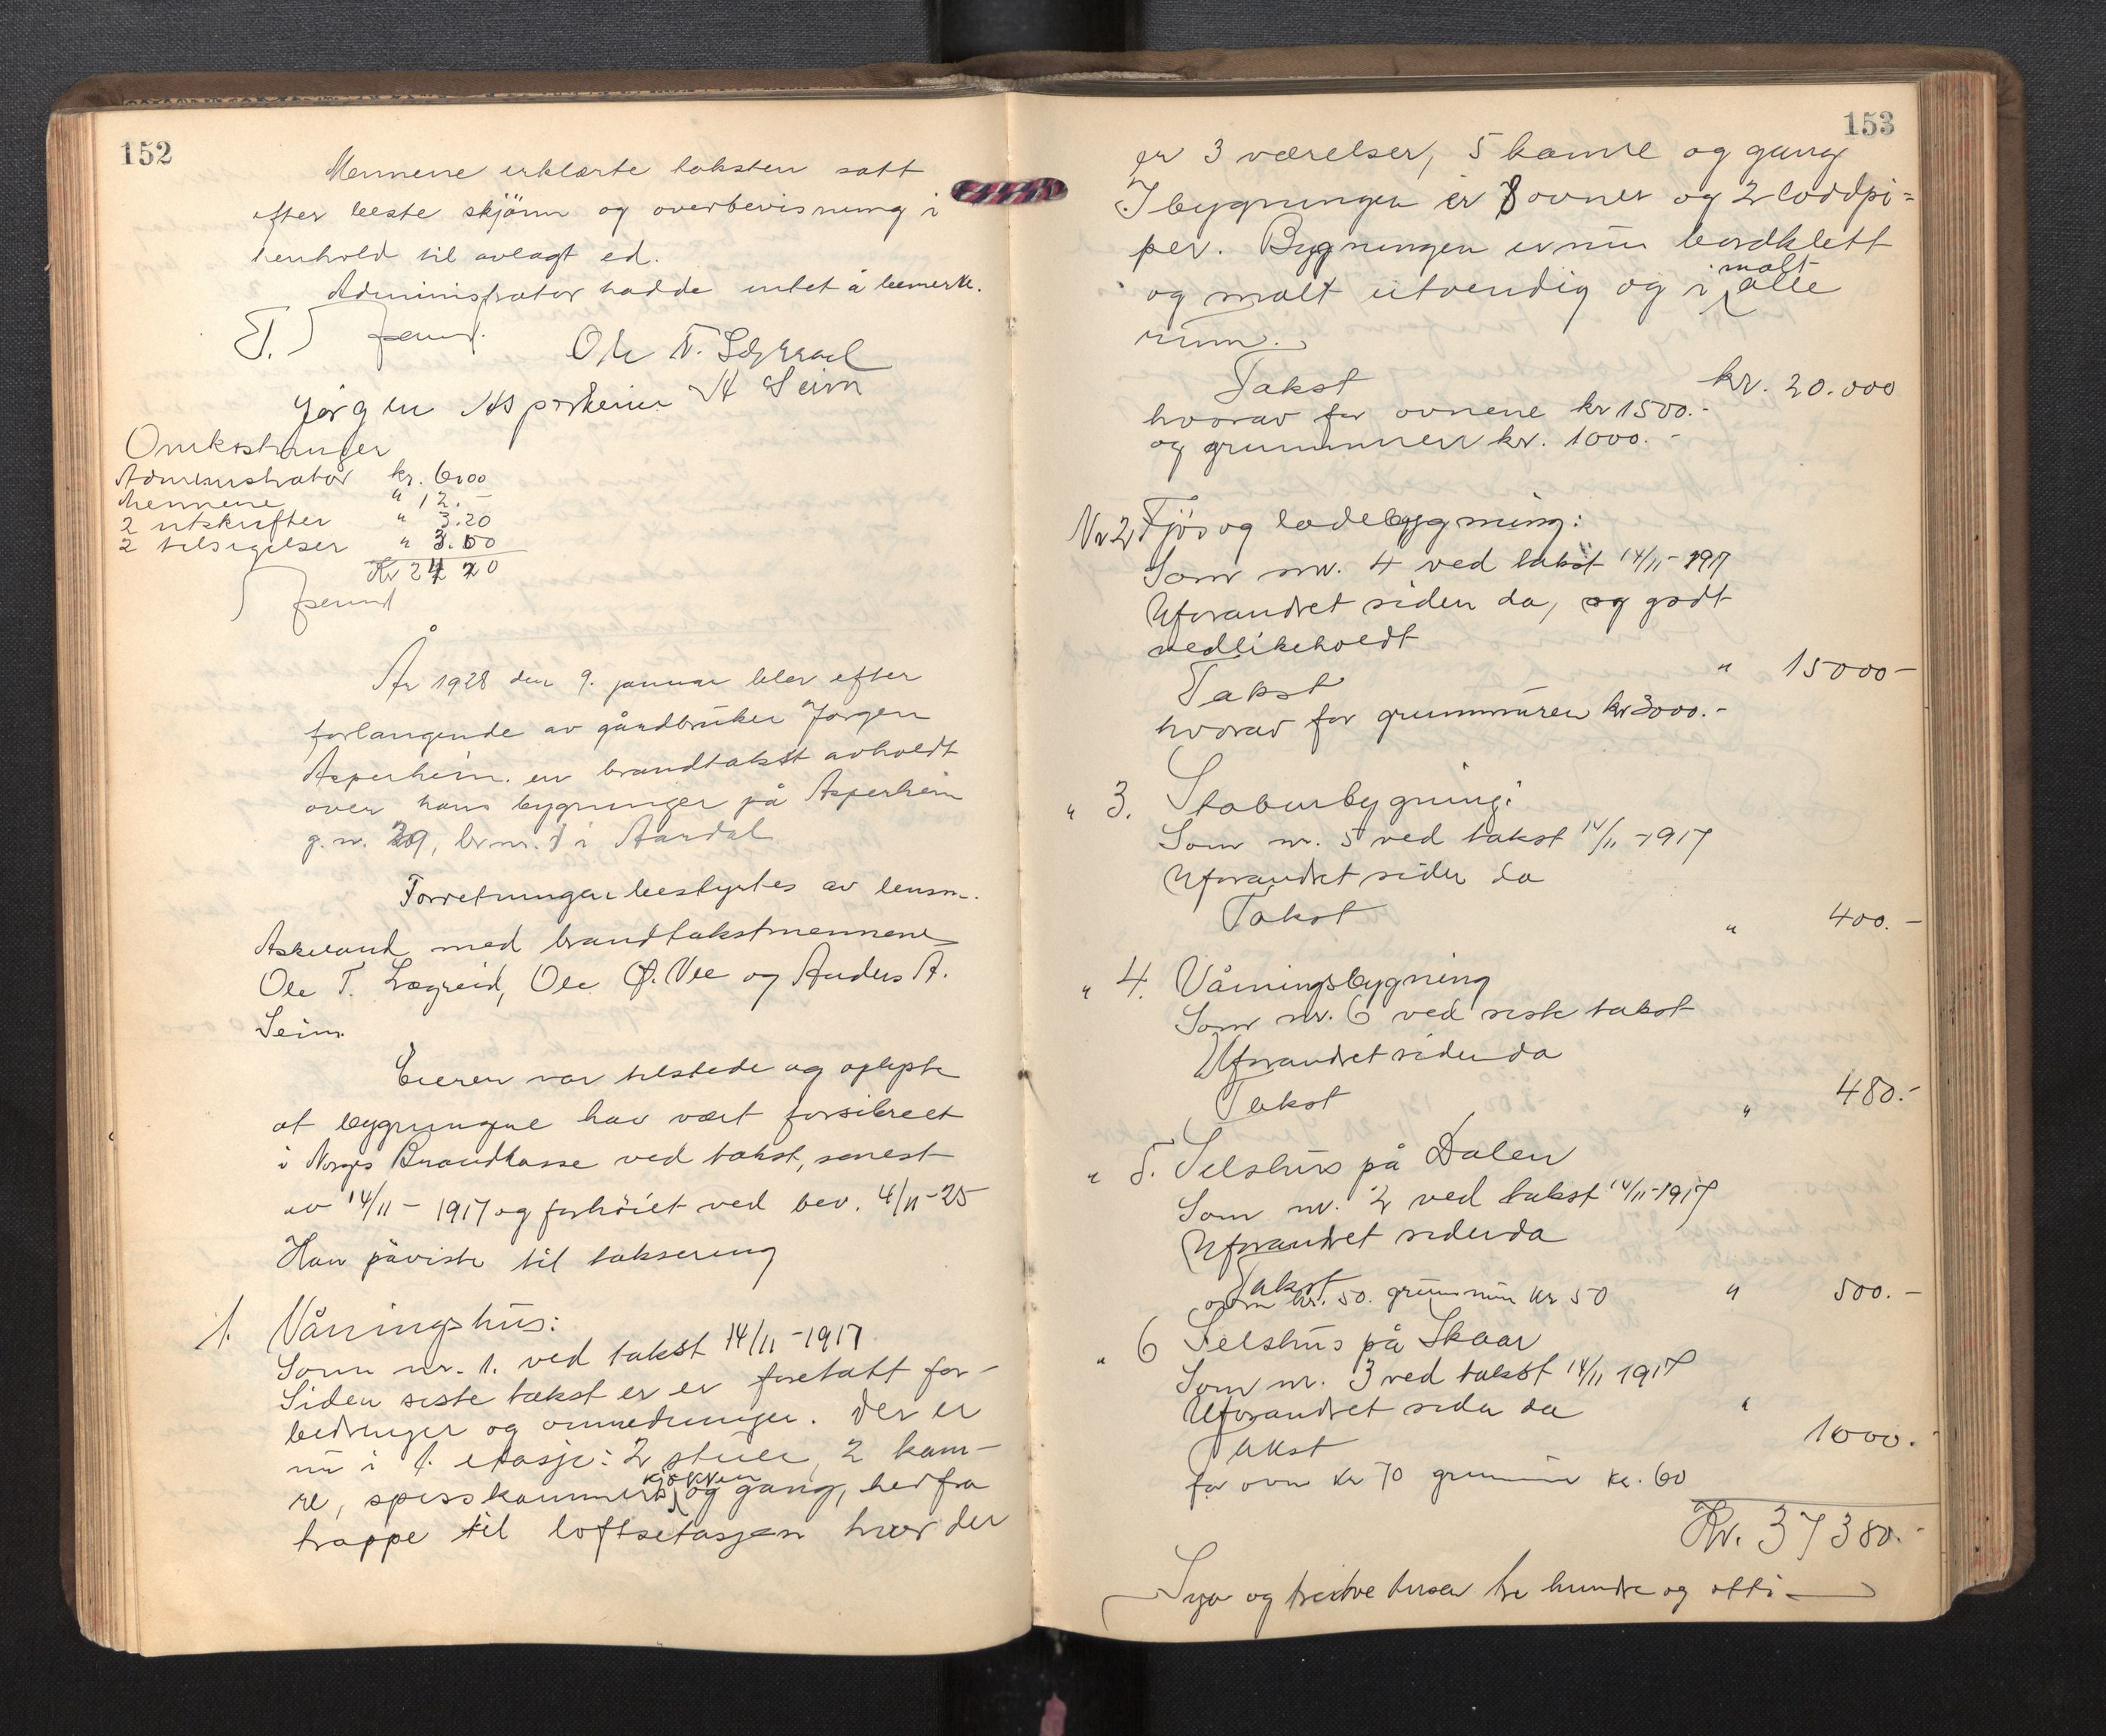 152
Mennene erklærte taksten satt
efter beste skjønn og overbevisning i
henhold til avlagt ed.
Administrator hadde intet å bemerke.
Ole T. Lægreid
Jørgen Asperheim A Seim
Omkostninger
Administrator kr. 6.00
Mennene " 12.-
2 utskrifter " 3.20
2 tilsigelser " 3.00
Kr 24 20
År 1928 den 9. januar blev efter
forlangende av gårdbruker Jørgen
Asperheim en brandtakst avholdt
over hans bygninger på Asperheim
g.nr. 29, br.nr. 1 i Aardal
Forretningen bestyrtes av lensm.
Askeland med brandtakstmennene
Ole T. Lægreid, Ole O. Vee og Anders A.
Seim.
Eieren var tilstede og oplyste
at bygningene har vært forsikret
i Norges Brandkasse ved takst, senest
av 14/11 - 1917 og forhöiet ved bev. 4/11-25
Han påviste til taksering
1. Våningshus:
Som nr. 1. ved takst 14/11 - 1917
Siden siste takst er er foretatt for-
bedringer og innredninger. Der er
nu i 1. etasje: 2 stuer, 2 kam-
re, spisskammer, kjøkken og gang, herfra
trappe til loftsetasjen hvor der
153
er 3 værelser, 5 kamre og gang
I bygningen er 8 ovner og 2 loddpi=
per. Bygningen er nu bordklett
og malt utvendig og i malt alle
rum.
Takst kr. 20.000
hvorav for ovnene kr 1500.-
og grunnmuren kr. 1000.-
Nr 2 Fjös og ladebygning:
Som nr. 4 ved takst 14/11 - 1917
Uforandret siden da, og godt
vedlikeholdt
Takst " 15000-
hvorav for grunnmuren kr 3000.-
" 3. Stabursbygning:
Som nr. 5 ved takst 14/11 - 1917
Uforandret siden da
Takst " 400.-
" 4. Våningsbygning
Som nr. 6 ved siste takst
Uforandret siden da
Takst " 480.-
" 5. Selshus på Dalen
Som nr. 2 ved takst 14/11 - 1917
Uforandret siden da
Takst
ovn kr. 50. grunnmur kr 50 " 500.-
" 6 Selshus på Skaar
Som nr. 3 ved takst 14/11 1917
Uforandret siden da "
Takst 1000.-
for ovn kr 70 grunmur kr. 60
Kr. 37380.-
Syv og tredve tusen tre hundre og otti